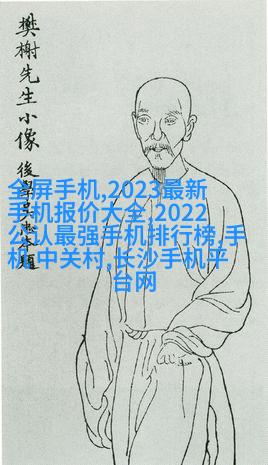 樊榭先生小像
後學題
全屏手机,2023最新
手机报价大全,2022
公认最强手机排行榜,手
机,中关村,长沙手机平
台网